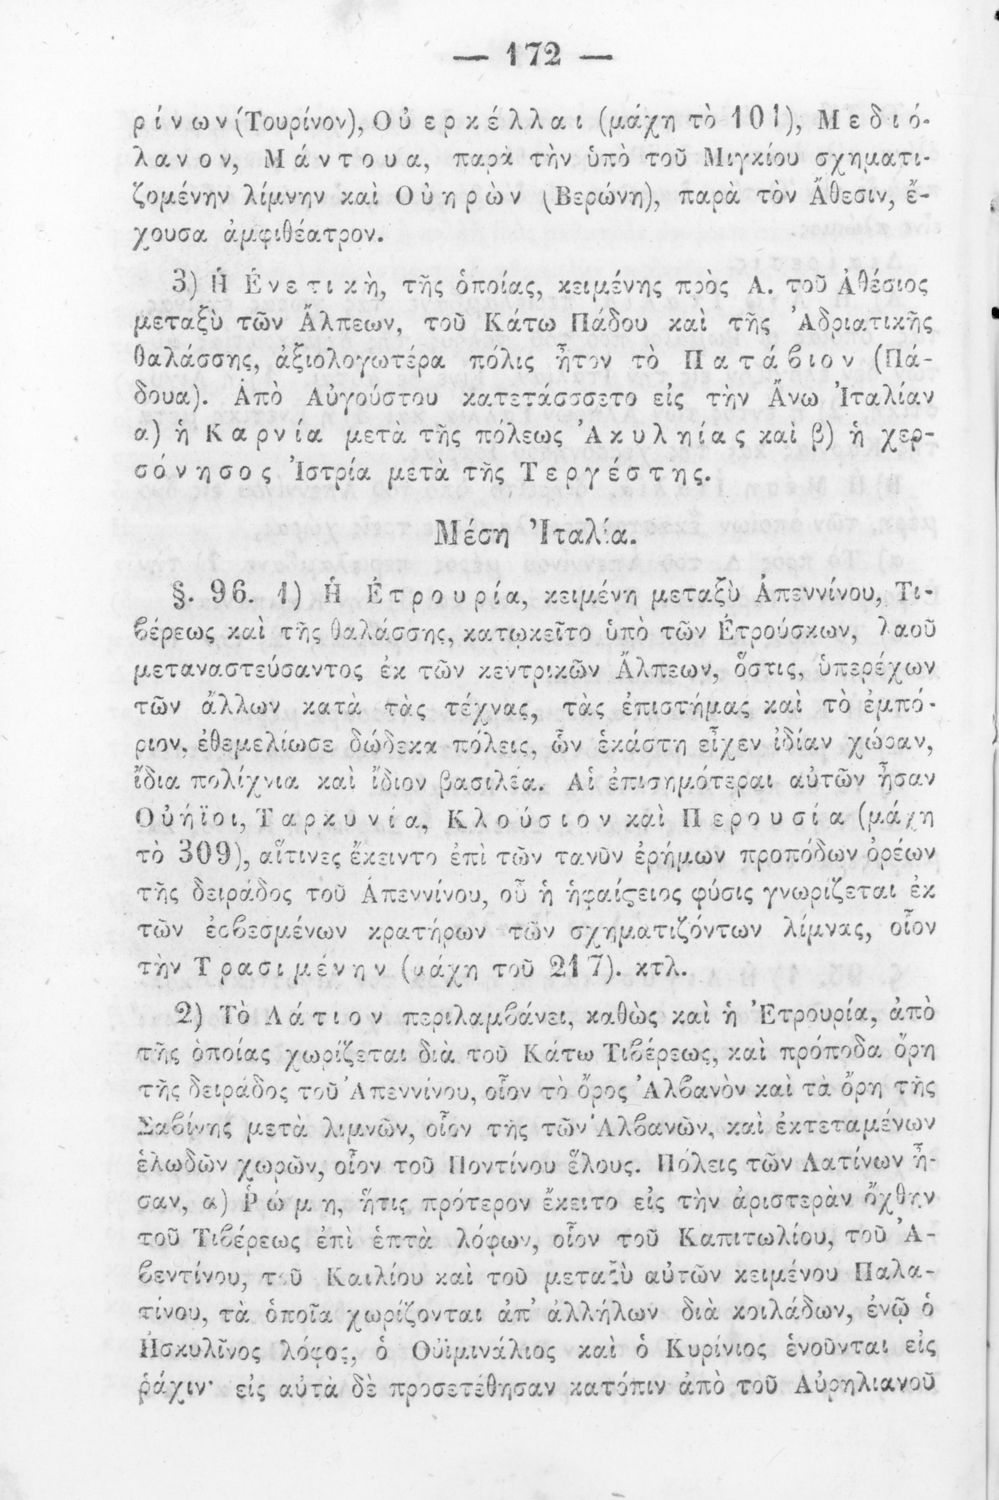 — 172 —
ρίνων (Τουρίνον), Οὐερκέλλαι (μάχη τὸ 101), Μεδιό-
λανον, Μάντουα, παρὰ τὴν ὑπὸ τοῦ Μιγκίου σχηματι-
ζομένην λίμνην καὶ Οὐηρὼν (Βερώνη), παρὰ τὸν Ἄθεσιν, ἔ-
χουσα ἀμφιθέατρον.
3) Ἡ Ἐνετικὴ, τῆς ὁποίας, κειμένης πρὸς Α. τοῦ Ἀθέσιος
μεταξὺ τῶν Ἄλπεων, τοῦ Κάτω Πάδου καὶ τῆς Ἀδριατικῆς
θαλάσσης, ἀξιολογωτέρα πόλις ἦτον τὸ Πατάβιον (Πά-
δουα). Ἀπὸ Αὐγούστου κατετάσσσετο εἰς τὴν Ἄνω Ἰταλίαν
α) ἡ Καρνία μετὰ τῆς πόλεως Ἀκυληίας καὶ β) ἡ χερ-
σόνησος Ἰστρία μετὰ τῆς Τεργέστης.
Μέση Ἰταλία.
§. 96. 1) Ἡ Ἐτρουρία, κειμένη μεταξὺ Ἀπεννίνου, Τι-
βέρεως καὶ τῆς θαλάσσης, κατῳκεῖτο ὑπὸ τῶν Ἐτρούσκων, λαοῦ
μεταναστεύσαντος ἐκ τῶν κεντρικῶν Ἄλπεων, ὅστις, ὑπερέχων
τῶν ἄλλων κατὰ τὰς τέχνας, τὰς ἐπιστήμας καὶ τὸ ἐμπό-
ριον, ἐθεμελίωσε δώδεκα πόλεις, ὧν ἑκάστη εἶχεν ἰδίαν χώραν,
ἴδια πολίχνια καὶ ἴδιον βασιλέα. Αἱ ἐπισημότεραι αὐτῶν ἦσαν
Οὐήϊοι, Ταρκυνία, Κλούσιον καὶ Περουσία (μάχη
τὸ 309), αἵτινες ἔκειντο ἐπὶ τῶν τανῦν ἐρήμων προπόδων ὀρέων
τῆς δειράδος τοῦ Ἀπεννίνου, οὗ ἡ ἡφαίςειος φύσις γνωρίζεται ἐκ
τῶν ἐσβεσμένων κρατήρων τῶν σχηματιζόντων λίμνας, οἷον
τὴν Τρασιμένην (μάχη τοῦ 217). κτλ.
2) Τὸ Λάτιον περιλαμβάνει, καθὼς καὶ ἡ Ἐτρουρία, ἀπὸ
τῆς ὁποίας χωρίζεται διὰ τοῦ Κάτω Τιβέρεως, καὶ πρόποδα ὄρη
τῆς δειράδος τοῦ Ἀπεννίνου, οἷον τὸ ὄρος Ἀλβανὸν καὶ τὰ ὄρη τῆς
Σαβίνης μετὰ λιμνῶν, οἷον τῆς τῶν Ἀλβανῶν, καὶ ἐκτεταμένων
ἑλωδῶν χωρῶν, οἷον τοῦ Ποντίνου ἕλους. Πόλεις τῶν Λατίνων ἦ-
σαν, α) Ῥώμη, ἥτις πρότερον ἔκειτο εἰς τὴν ἀριστερὰν ὄχθην
τοῦ Τιβέρεως ἐπὶ ἑπτὰ λόφων, οἷον τοῦ Καπιτωλίου, τοῦ Ἀ-
βεντίνου, τοῦ Καιλίου καὶ τοῦ μεταξὺ αὐτῶν κειμένου Παλα-
τίνου, τὰ ὁποῖα χωρίζονται ἀπ' ἀλλήλων διὰ κοιλάδων, ἐνῷ ὁ
Ἠσκυλῖνος λόφος, ὁ Οὐϊμινάλιος καὶ ὁ Κυρίνιος ἑνοῦνται εἰς
ῥάχιν· εἰς αὐτὰ δὲ προσετέθησαν κατόπιν ἀπὸ τοῦ Αὐρηλιανοῦ